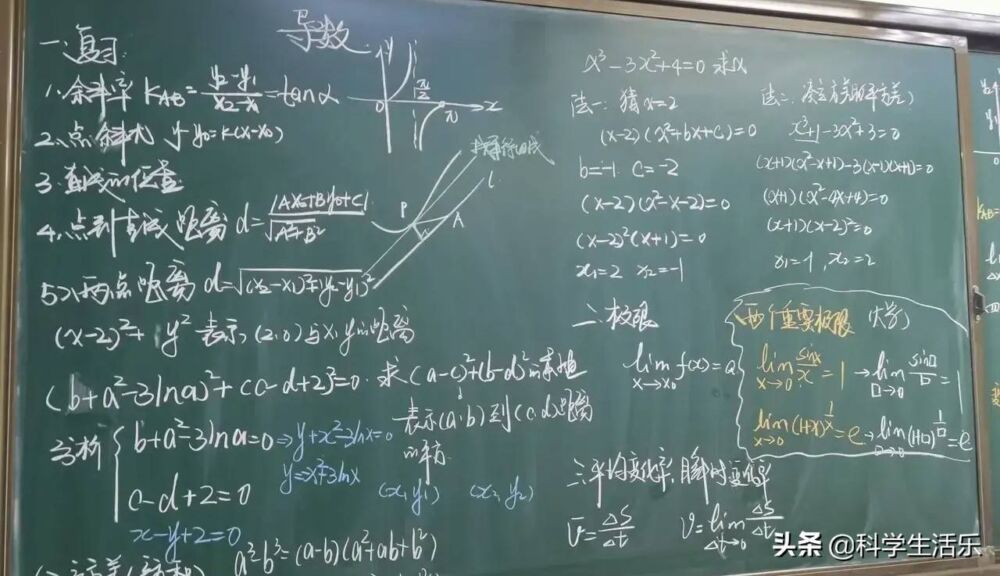 导数
一、复习
1、斜率 K_AB = (y₂-y₁)/(x₂-x₁) = tanα
y
0 π/2 π x
2、点斜式 y-y₀=k(x-x₀)
3、直线的位置
4、点到直线距离 d = |Ax₀+By₀+C|/√(A²+B²)
P A l
5、两点距离 d=√((x₂-x₁)²+(y₂-y₁)²)
(x-2)²+y² 表示 (2,0)与x,y的距离
(b+a²-3lna)²+(c-d+2)²=0 求(a-c)²+(b-d)²的
表示(a,b)到(c,d)距离
的平方
分析 { b+a²-3lna=0 ⇒ y+x²-3lnx=0
y=-x²+3lnx
c-d+2=0
(x₁,y₁) (x₂,y₂)
x-y+2=0
a³-b³=(a-b)(a²+ab+b²)
x³-3x²+4=0 求x
法一:猜x=2
(x-2)(x²+bx+c)=0
b=-1 c=-2
(x-2)(x²-x-2)=0
(x-2)²(x+1)=0
x₁=2 x₂=-1
法二:
x³+1-3x²+3=0
(x+1)(x²-x+1)-3(x-1)(x+1)=0
(x+1)(x²-4x+4)=0
(x+1)(x-2)²=0
x₁=-1, x₂=2
二、极限
lim x→x₀ f(x)=a
两个重要极限 (大学)
lim x→0 sinx/x = 1 → lim □→0 sin□/□ = 1
lim x→0 (1+x)^(1/x) = e → lim □→0 (1+□)^(1/□) = e
三、平均变化率,瞬时变化率
v̄=Δs/Δt v=lim Δt→0 Δs/Δt
头条 @科学生活乐